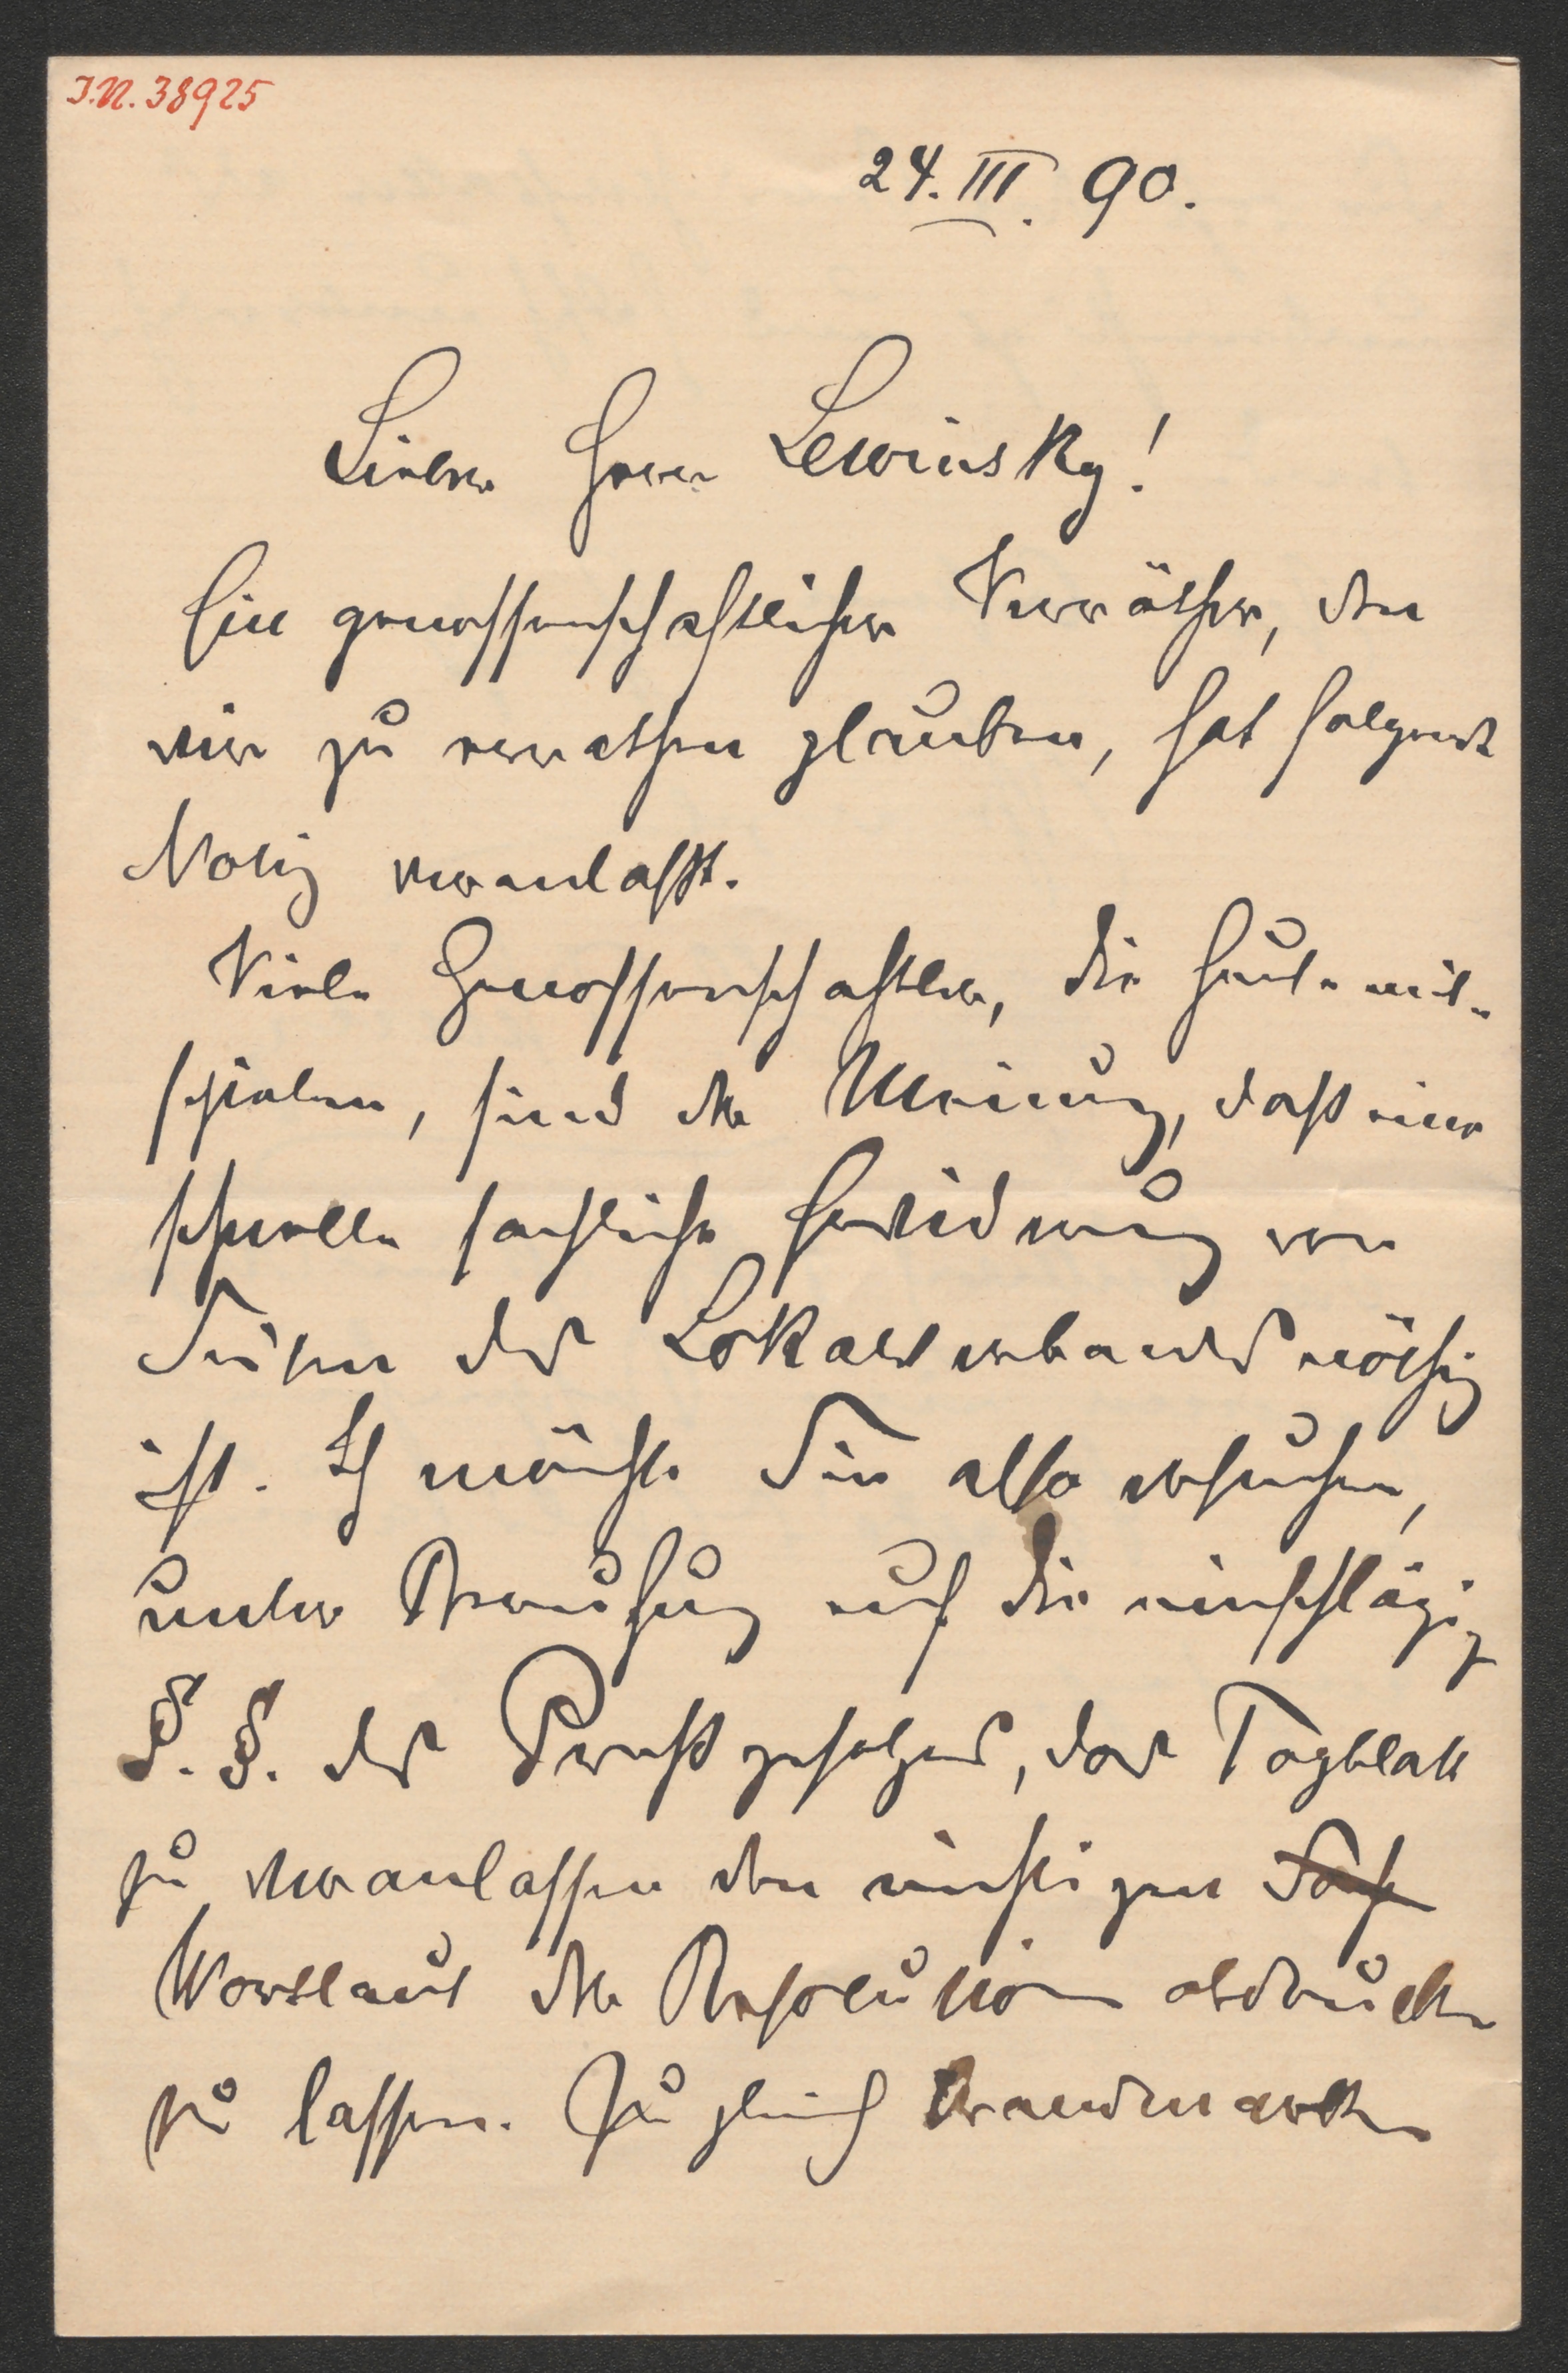 I.N. 38925
24. III. 90.
Lieber Herr Lewinsky!
Ein genossenschaftlicher Verräther, den
wir zu errathen glauben, hat folgende
Notiz veranlaßt.
Viele Genossenschafter, die heute mit-
spielen, sind der Meinung, daß eine
schnelle sachliche Erwiderung von
Seiten des Lokalverbandes nöthig
ist. Ich möchte Sie also ersuchen,
unter Berufung auf die einschlägig
§. §. des Preßgesetzes, das Tagblatt
zu veranlassen den richtigen
Wortlaut der Resolution abdrucken
zu lassen. Zugleich brandmarken